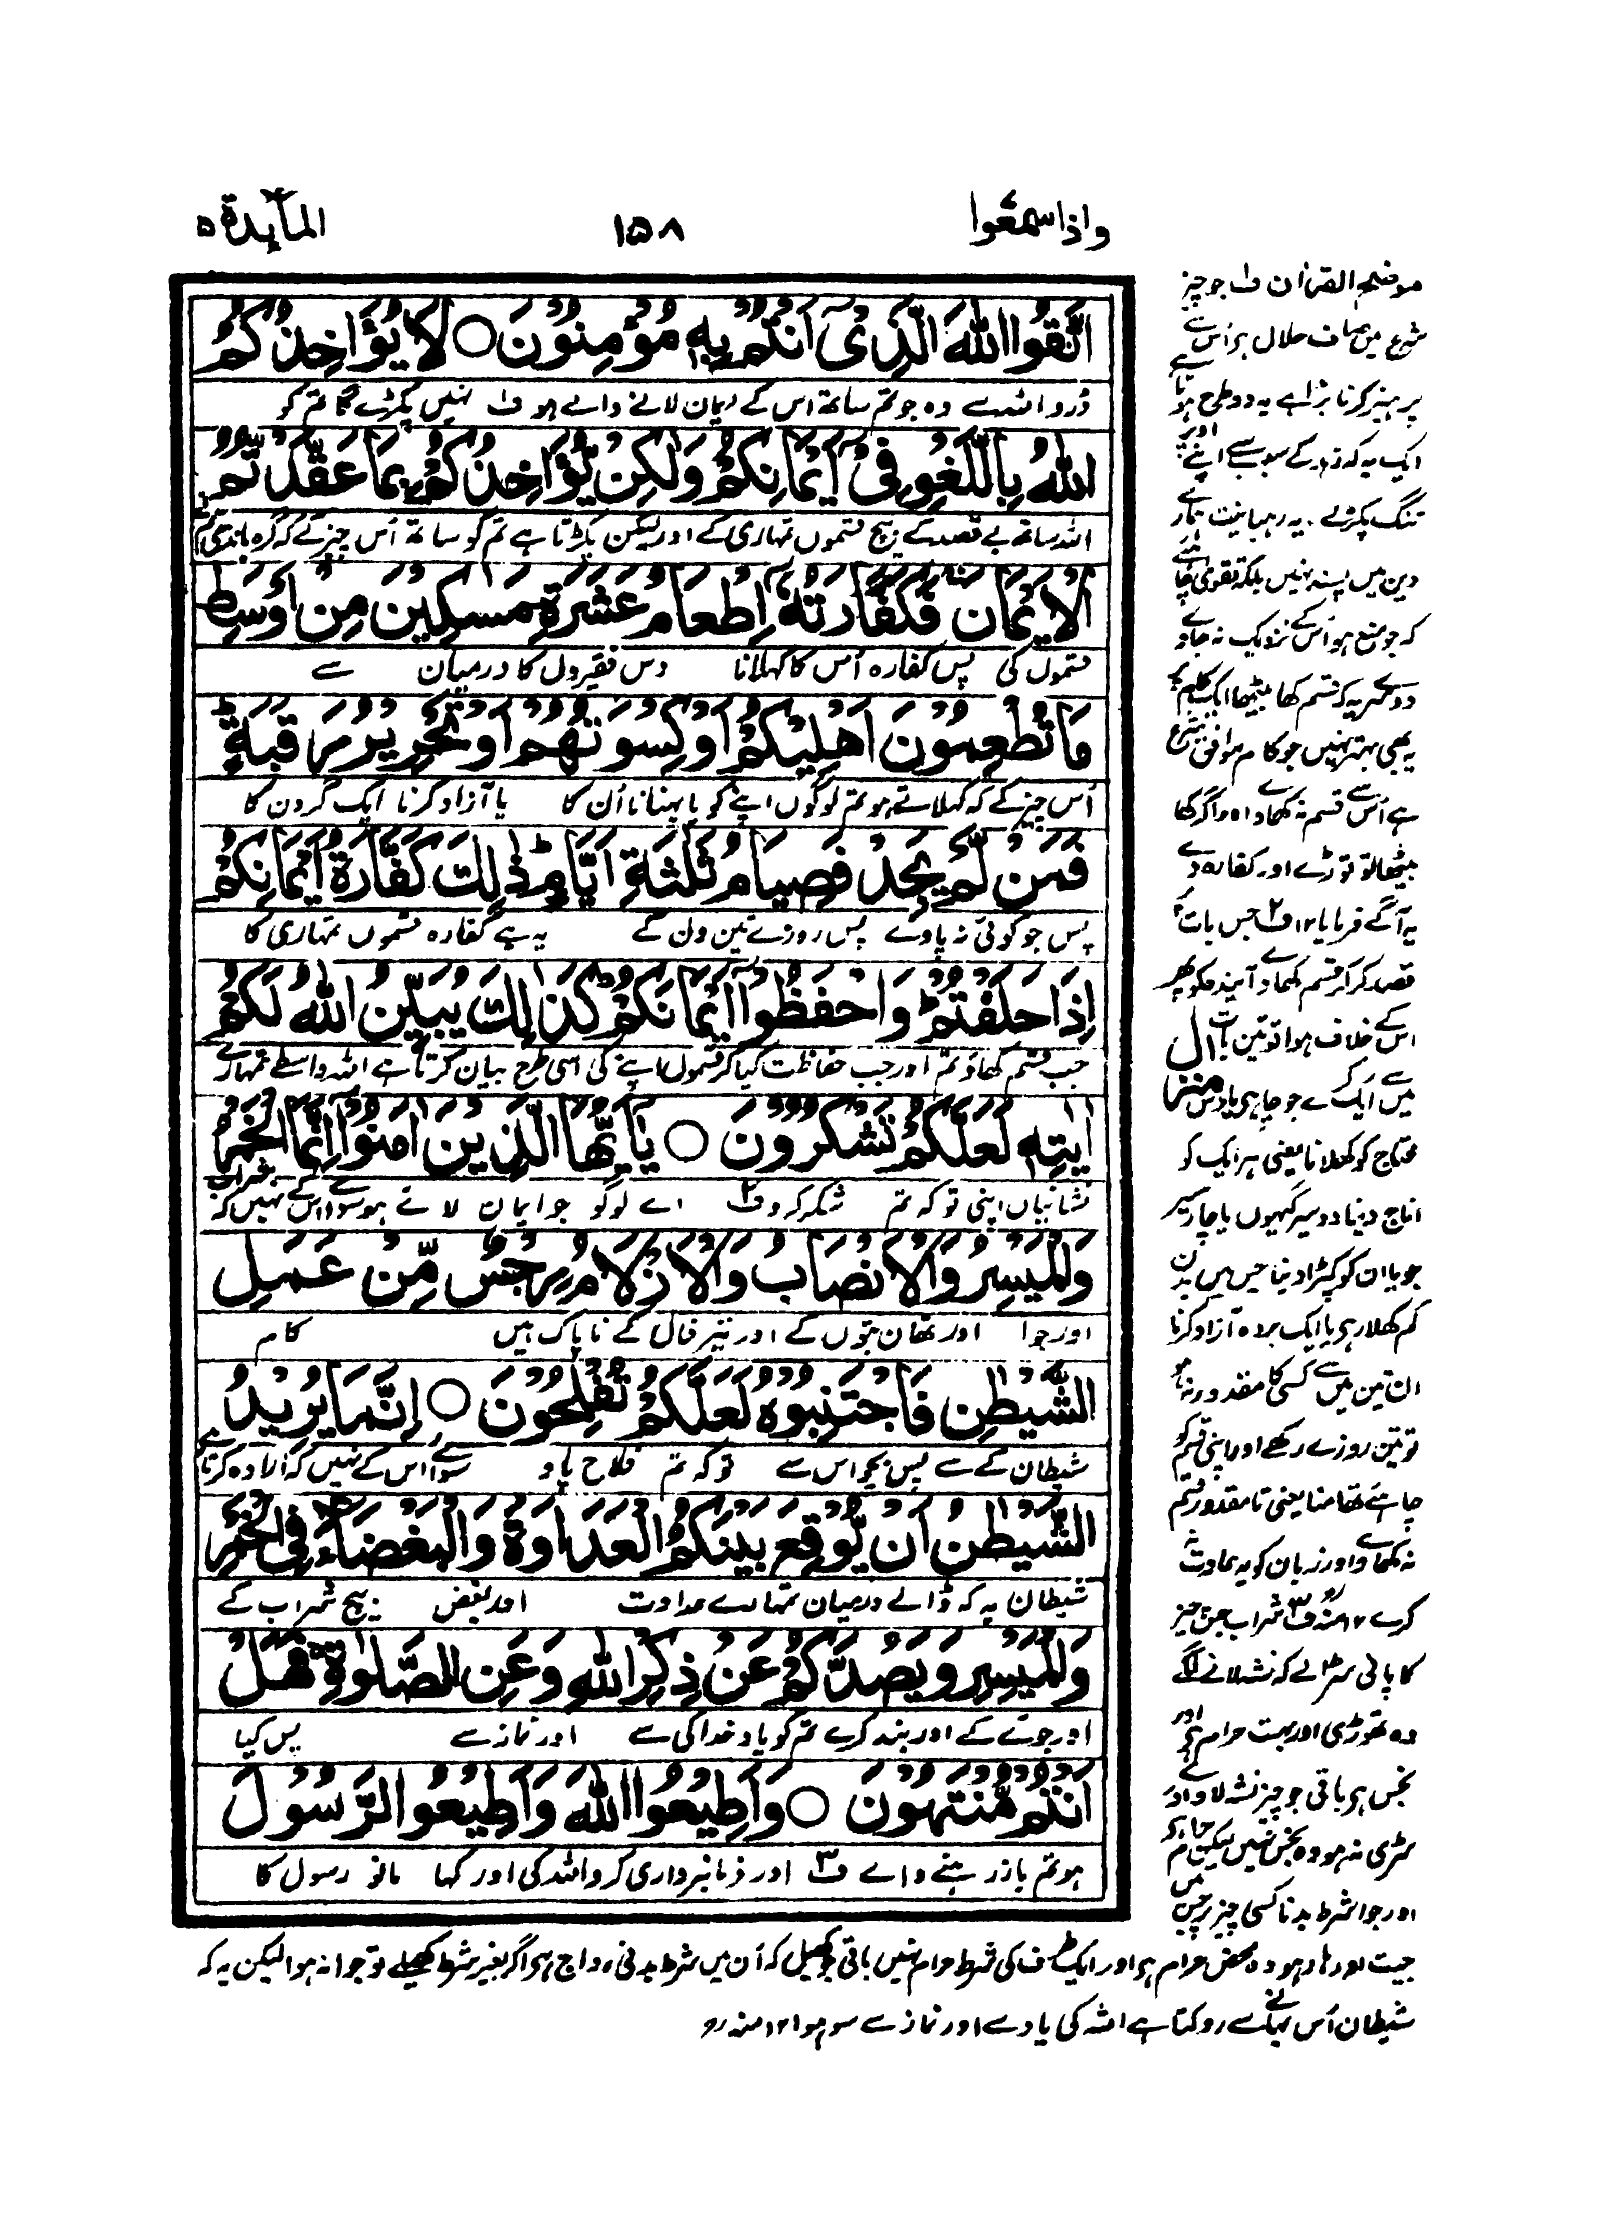 واذا سمعوا
١٥٨
المآىِٕدة ٥
اتَّقُوا اللّٰهَ الَّذِيْٓ اَنْتُمْ بِهٖ مُؤْمِنُوْنَ ○ لَا يُؤَاخِذُكُمُ
ڈرو اللہ سے وہ جو تم ساتھ اس کے ایمان لانے والے ہو ف۱ نہیں پکڑے گا تم کو
اللّٰهُ بِاللَّغْوِ فِيْٓ اَيْمَانِكُمْ وَلٰكِنْ يُّؤَاخِذُكُمْ بِمَا عَقَّدْتُّمُ
اللہ ساتھ بے قصد کے بیچ قسموں تمہاری کے اور لیکن پکڑتا ہے تم کو ساتھ اُس چیز کے کہ گرہ باندھی تم نے
الْاَيْمَانَ فَكَفَّارَتُهٗٓ اِطْعَامُ عَشَرَةِ مَسٰكِيْنَ مِنْ اَوْسَطِ
قسموں کی پس کفارہ اُس کا کھلانا دس فقیروں کا درمیان سے
مَا تُطْعِمُوْنَ اَهْلِيْكُمْ اَوْ كِسْوَتُهُمْ اَوْ تَحْرِيْرُ رَقَبَةٍ
اُس چیز کے کہ کھلاتے ہو تم لوگوں اپنے کو یا پہنانا اُن کا یا آزاد کرنا ایک گردن کا
فَمَنْ لَّمْ يَجِدْ فَصِيَامُ ثَلٰثَةِ اَيَّامٍ ذٰلِكَ كَفَّارَةُ اَيْمَانِكُمْ
پس جو کوئی نہ پاوے پس روزے تین دن کے یہ ہے کفارہ قسموں تمہاری کا
اِذَا حَلَفْتُمْ وَاحْفَظُوْٓا اَيْمَانَكُمْ كَذٰلِكَ يُبَيِّنُ اللّٰهُ لَكُمْ
جب قسم کھاؤ تم اور جب حفاظت کیا کرو قسموں اپنے کی اسی طرح بیان کرتا ہے اللہ واسطے تمہارے
اٰيٰتِهٖ لَعَلَّكُمْ تَشْكُرُوْنَ ○ يٰٓاَيُّهَا الَّذِيْنَ اٰمَنُوْٓا اِنَّمَا الْخَمْرُ
نشانیاں اپنی تو کہ تم شکر کرو ف۲ اے لوگو جو ایمان لائے ہو سوا اس کے نہیں کہ شراب
وَالْمَيْسِرُ وَالْاَنْصَابُ وَالْاَزْلَامُ رِجْسٌ مِّنْ عَمَلِ
اور جوا اور تھان بتوں کے اور تیر فال کے ناپاک ہیں کام
الشَّيْطٰنِ فَاجْتَنِبُوْهُ لَعَلَّكُمْ تُفْلِحُوْنَ ○ اِنَّمَا يُرِيْدُ
شیطان کے سے پس بچو اس سے تو کہ تم فلاح پاو سوا اس کے نہیں کہ ارادہ کرتا ہے
الشَّيْطٰنُ اَنْ يُّوْقِعَ بَيْنَكُمُ الْعَدَاوَةَ وَالْبَغْضَآءَ فِي الْخَمْرِ
شیطان یہ کہ ڈالے درمیان تمہارے عداوت اور بغض بیچ شراب کے
وَالْمَيْسِرِ وَيَصُدَّكُمْ عَنْ ذِكْرِ اللّٰهِ وَعَنِ الصَّلٰوةِ فَهَلْ
اور جوئے کے اور بند کرے تم کو یاد خدا کی سے اور نماز سے پس کیا
اَنْتُمْ مُّنْتَهُوْنَ ○ وَاَطِيْعُوا اللّٰهَ وَاَطِيْعُوا الرَّسُوْلَ
ہو تم باز رہنے والے ف۳ اور فرمانبرداری کرو اللہ کی اور کہا مانو رسول کا
موضح القرآن ف۱ جو چیز
شرع میں صاف حلال ہو اُس سے
پرہیز کرنا بڑا ہے یہ دو طرح ہوتا ہے
ایک یہ کہ زہد کے سبب سے اپنے اوپر
تنگ پکڑے۔ یہ رہبانیت ہمارے
دین میں پسند نہیں بلکہ تقوی چاہئے
کہ جو منع ہو اُس کے نزدیک نہ جاوے
دوسرے یہ کہ قسم کھا بیٹھا ایک کام پر
یہ بھی بہتر نہیں جو کام موافق شرع
ہے اُس سے قسم نہ کھاوے اور اگر کھا
بیٹھا تو توڑے اور کفارہ دے
یہ آگے فرمایا ۱۲ ف۲ جس بات کو
قصد کر کر قسم کھاوے آیندہ کو پھر
اس کے خلاف ہوا تو تین بات
میں سے ایک کرے جو چاہی یا دس
محتاج کو کھلانا یعنی ہر ایک کو
اناج دینا دو سیر گیہوں یا چار سیر
جو یا ان کو کپڑا دینا جس میں بدن
کم کھلا رہی یا ایک بردہ آزاد کرنا
ان تین میں سے کسی کا مقدور نہ ہو
تو تین روزے رکھے اور اپنی قسم کو
چاہئے تھامنا یعنی تا مقدور قسم
نہ کھاوے اور زبان کو یہ عادت نہ
کرے ۱۲ منہ رہ ف۳ شراب جس چیز
کا پانی سڑا لے کہ نشہ لانے لگے
وہ تھوڑی اور بہت حرام ہی اور
نجس ہی باقی جو چیز نشہ لاوے اور
سڑی نہ ہو وہ نجس نہیں لیکن حرام ہے
اور جوا شرط بدنا کسی چیز پر جس میں
منزل
جیت اور ہار ہو وہ محض حرام ہی اور ایک طرف کی شرط حرام نہیں باقی جو کھیل کہ اُن میں شرط بدنی رواج ہی اگر بغیر شرط کھیلے تو جوا نہ ہوا لیکن یہ کہ
شیطان اُس بہانے سے روکتا ہے اللہ کی یاد سے اور نماز سے سو ہوا ۱۲ منہ رہ